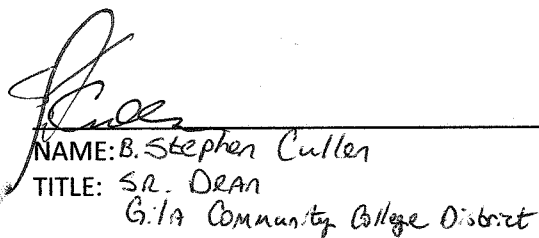 Cullen
NAME: B. Stephen Cullen
TITLE: SR. DEAN
Gila Community College District